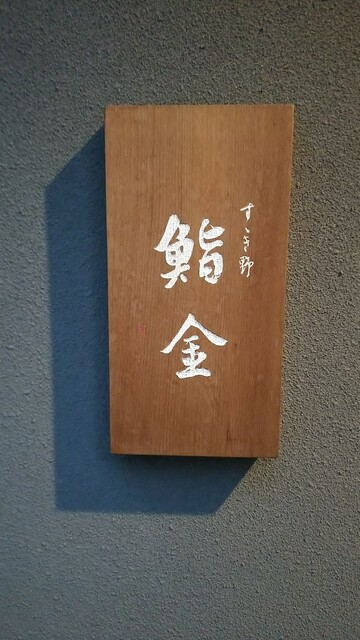 すゝき野
鮨金